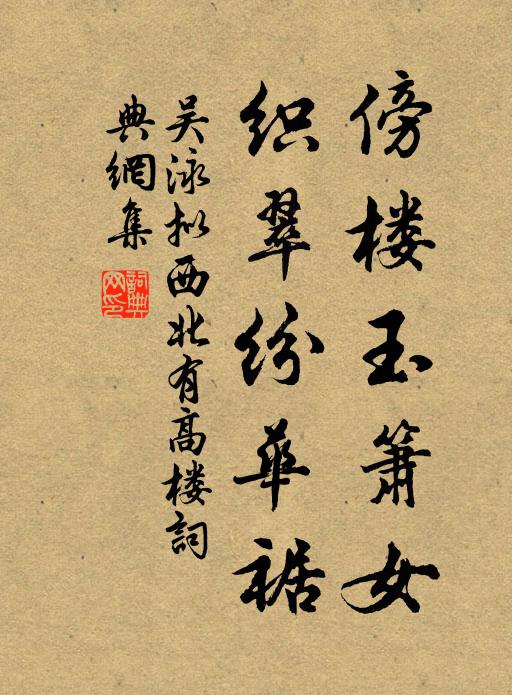 傍楼玉箫女
织翠纷华裾
吴泳拟西北有高楼词
典網集
詞典網印